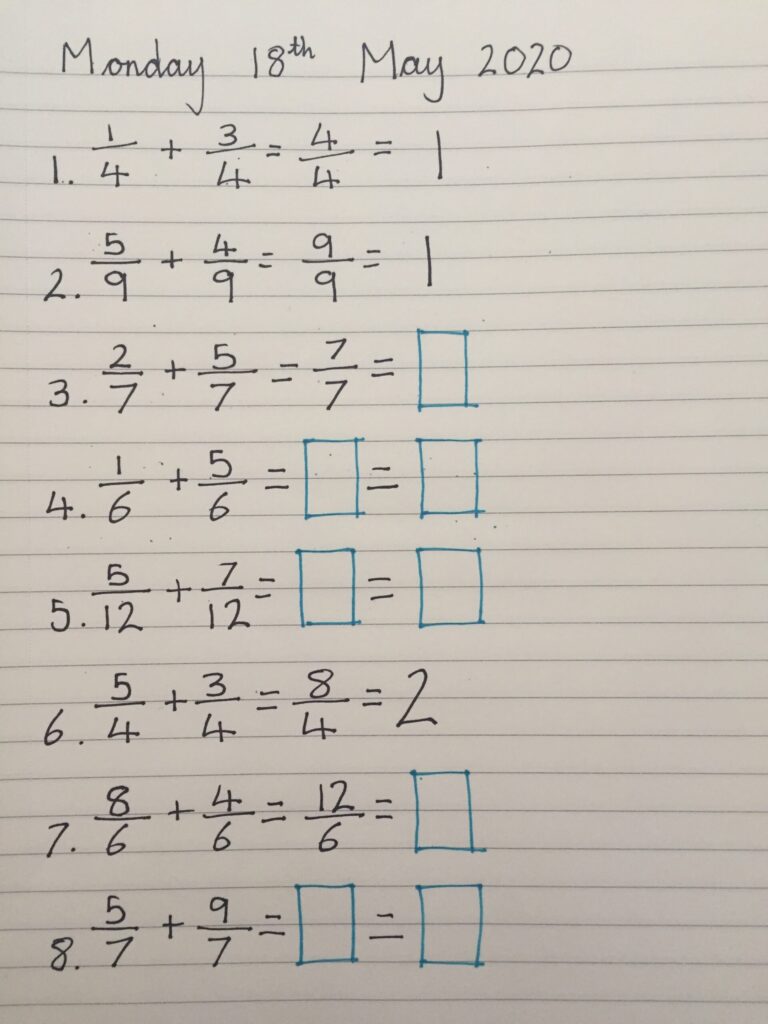 Monday 18th May 2020
1. 1/4 + 3/4 = 4/4 = 1
2. 5/9 + 4/9 = 9/9 = 1
3. 2/7 + 5/7 = 7/7 = □
4. 1/6 + 5/6 = □ = □
5. 5/12 + 7/12 = □ = □
6. 5/4 + 3/4 = 8/4 = 2
7. 8/6 + 4/6 = 12/6 = □
8. 5/7 + 9/7 = □ = □